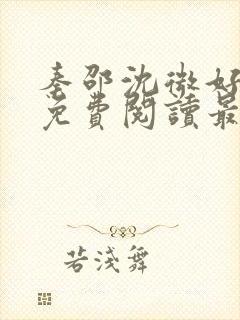 秦邵沈微好
免費閱讀最
若淺舞